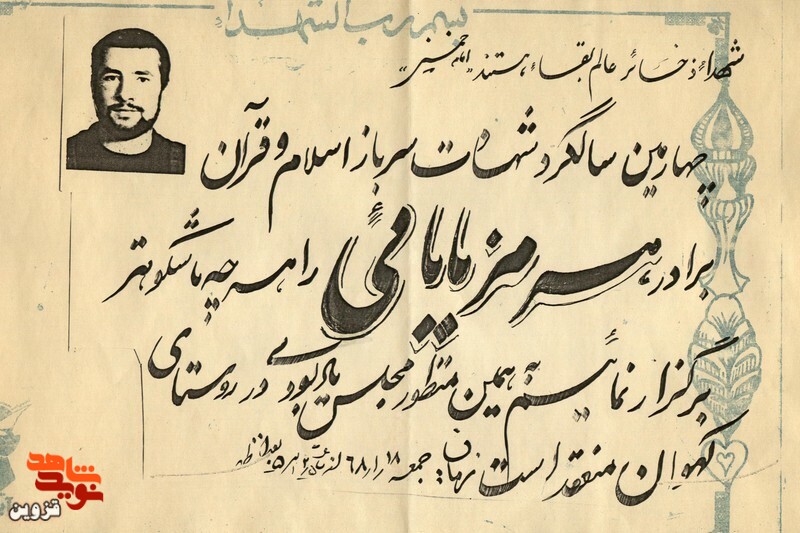 بسم رب الشهداء
شهداء ذخائر عالم بقاء هستند "امام خمینی"
چهارمین سالگرد شهادت سرباز اسلام و قرآن
برادر، هرمز پاپائی را هر چه باشکوهتر
برگزار نمائیم به همین منظور مجلس یادبودی در روستای
کهوان منعقد است زمان: جمعه ۱۸
بعدازظهر
نوید شاهد
قزوین